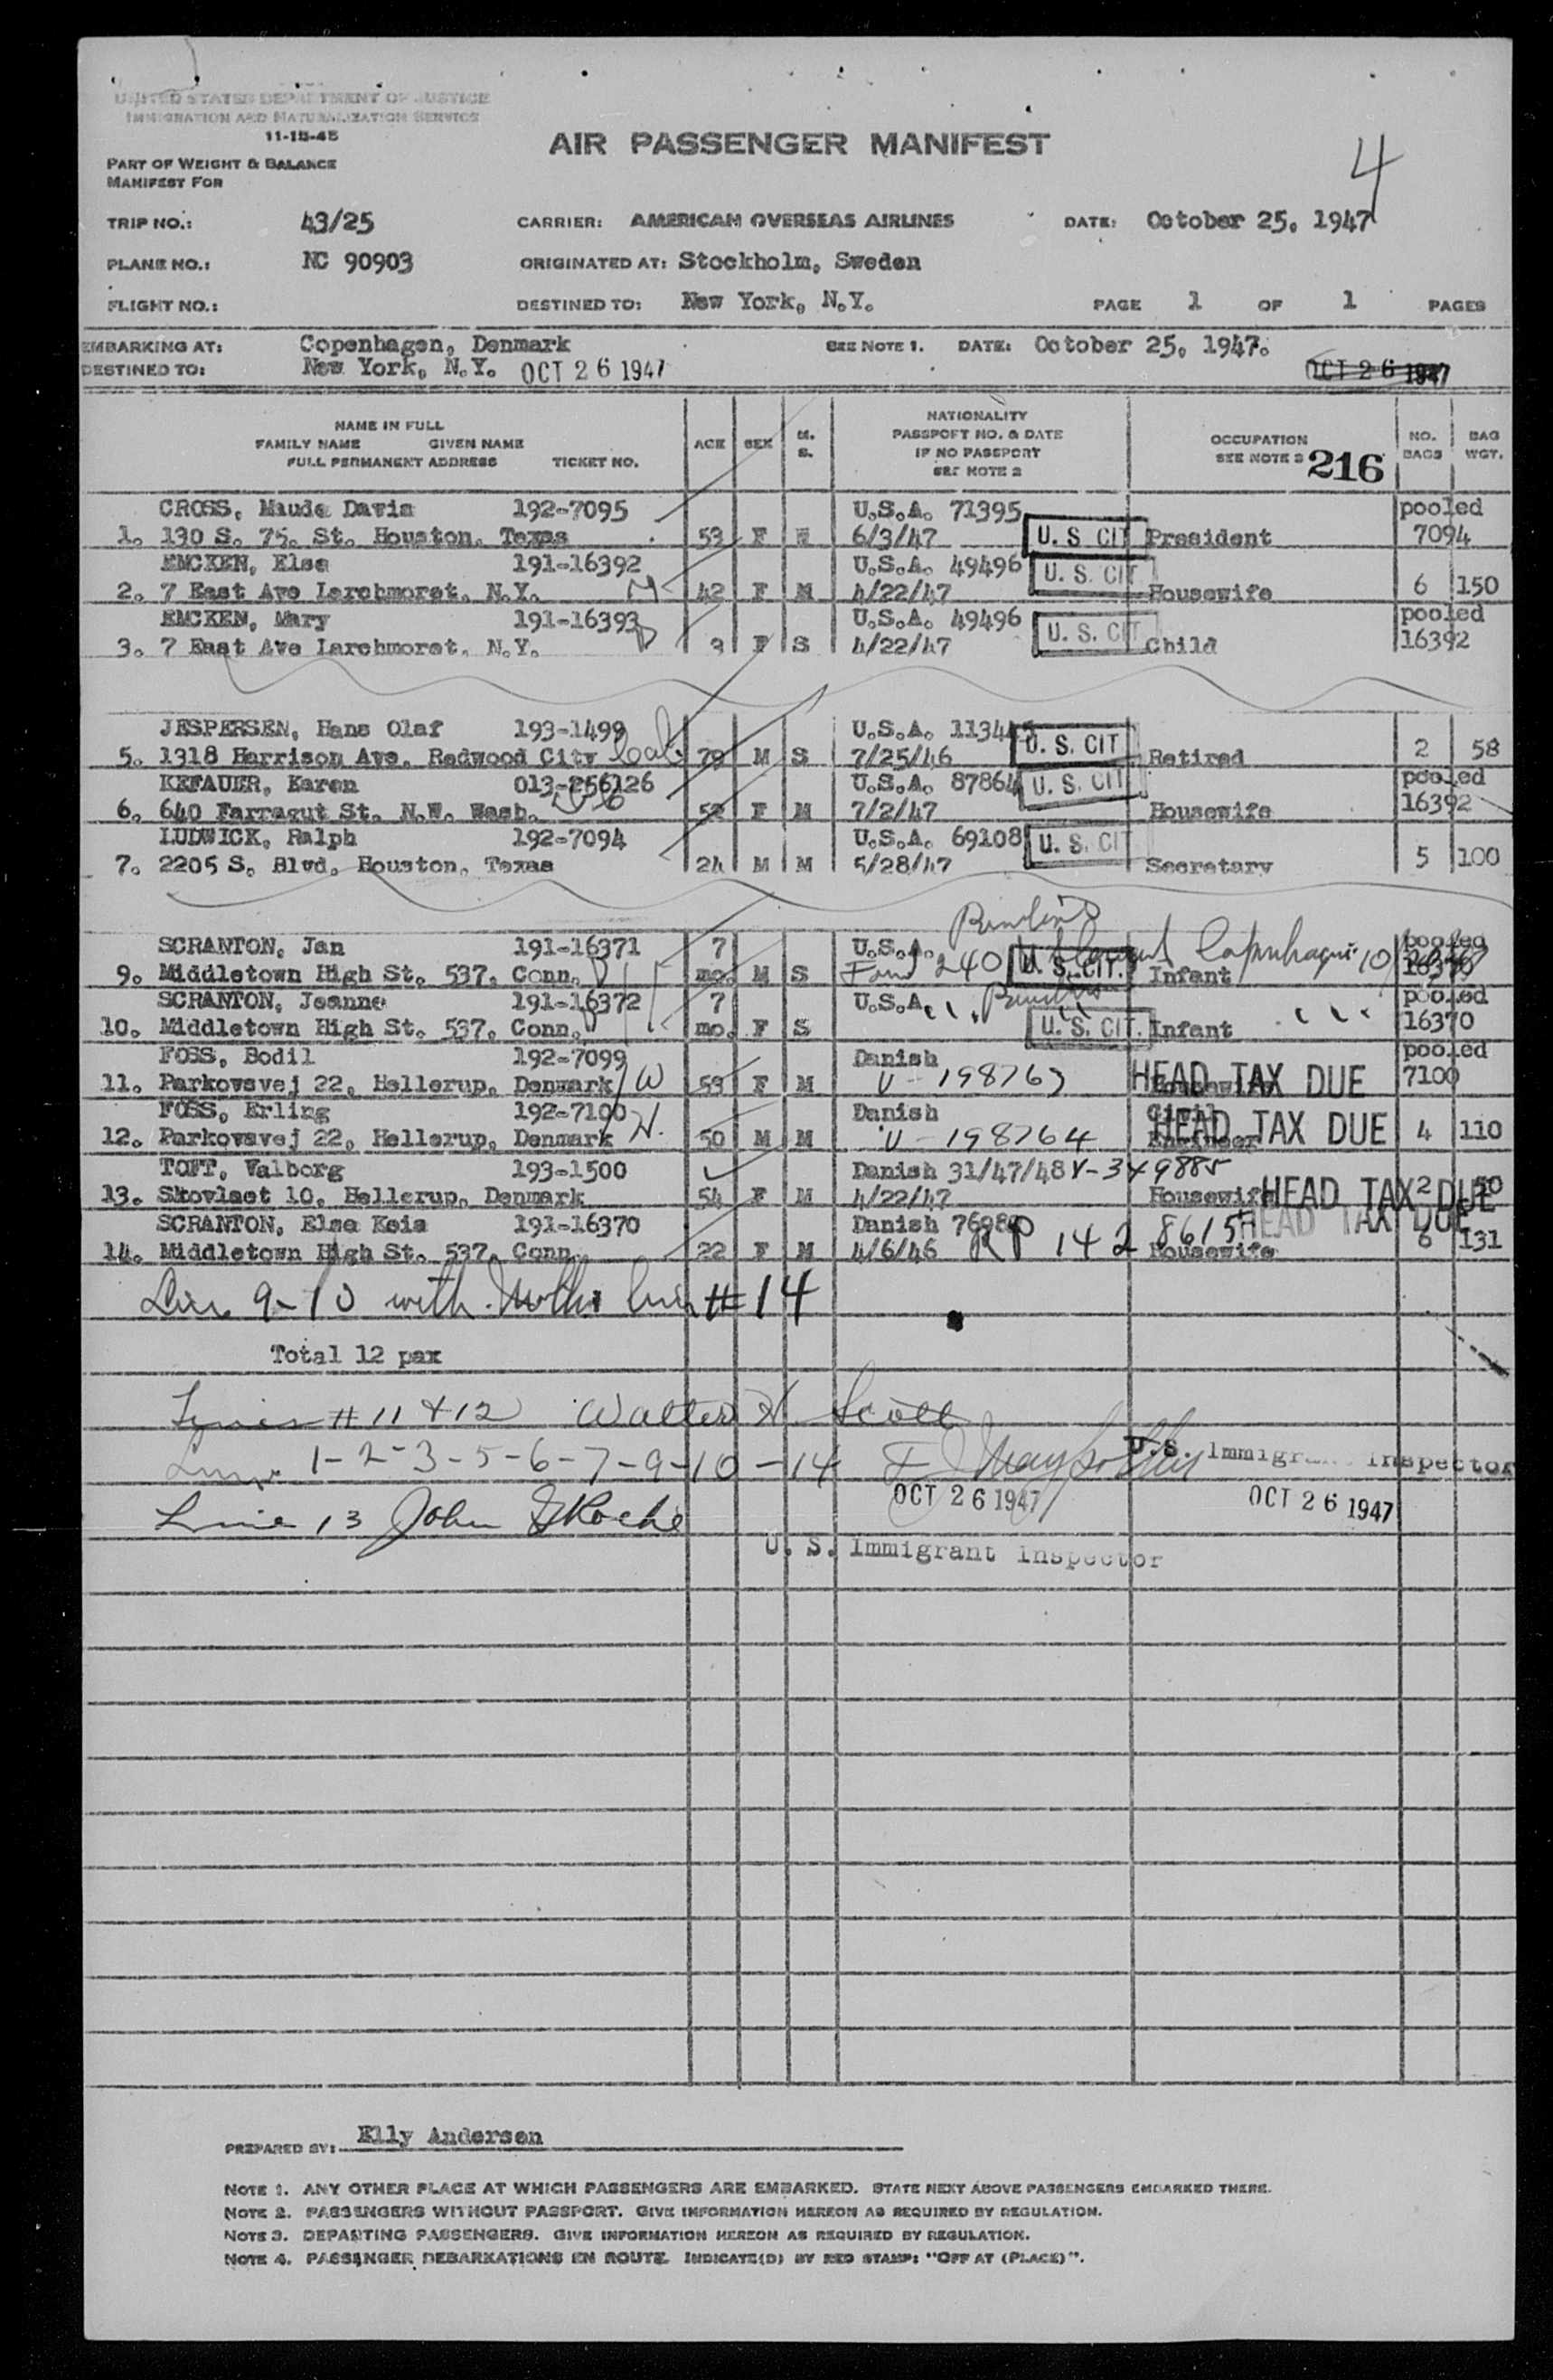 UNITED STATES DEPARTMENT OF JUSTICE
IMMIGRATION AND NATURALIZATION SERVICE
11-15-45
AIR PASSENGER MANIFEST
4
PART OF WEIGHT & BALANCE
MANIFEST FOR
TRIP NO.: 43/25 CARRIER: AMERICAN OVERSEAS AIRLINES DATE: October 25, 1947
PLANE NO.: NC 90903 ORIGINATED AT: Stockholm, Sweden
FLIGHT NO.: DESTINED TO: New York, N.Y. PAGE 1 OF 1 PAGES
EMBARKING AT: Copenhagen, Denmark SEE NOTE 1. DATE: October 25, 1947.
DESTINED TO: New York, N.Y. OCT 26 1947 OCT 26 1947
NAME IN FULL
FAMILY NAME GIVEN NAME
FULL PERMANENT ADDRESS TICKET NO. AGE SEX M. S. NATIONALITY PASSPORT NO. & DATE IF NO PASSPORT SEE NOTE 2 OCCUPATION SEE NOTE 3 216 NO. BAGS BAG WGT.
CROSS, Maude Davis 192-7095 U.S.A. 71395 pooled
1. 130 S. 75. St. Houston, Texas 53 F 6/3/47 U. S CIT President 7094
EMCKEN, Else 191-16392 U.S.A. 49496 U. S. CIT
2. 7 East Ave Larchmoret, N.Y. M 42 F M 4/22/47 Housewife 6 150
EMCKEN, Mary 191-16393 U.S.A. 49496 pooled
3. 7 East Ave Larchmoret, N.Y. D 3 F S 4/22/47 U. S. CIT Child 16392
JESPERSEN, Hans Olaf 193-1499 U.S.A. U. S. CIT
5. 1318 Harrison Ave. Redwood City Cal. 79 M S 7/25/46 Retired 2 58
KEFAUER, Karen 013-256126 U.S.A. 87864 U. S. CIT pooled
6. 640 Farragut St. N.W. Wash. DC F M 7/2/47 Housewife 16392
LUDWICK, Ralph 192-7094 U.S.A. 69108 U. S. CIT
7. 2205 S. Blvd. Houston, Texas 24 M M 5/28/47 Secretary 5 100
SCRANTON, Jan 191-16371 7 U.S.A. pooled
9. Middletown High St. 537, Conn. mo. M S 240 U. S. CIT. Infant 16370
SCRANTON, Jeanne 191-16372 7 U.S.A. pooled
10. Middletown High St. 537, Conn. mo. F S U. S. CIT. Infant 16370
FOSS, Bodil 192-7099 Danish pooled
11. Parkovsvej 22, Hellerup, Denmark W 53 F M V-198763 HEAD TAX DUE 7100
FOSS, Erling 192-7100 Danish Civil
12. Parkovsvej 22, Hellerup, Denmark H. 50 M M V-198764 Engineer HEAD TAX DUE 4 110
TOFT, Valborg 193-1500 Danish 31/47/48 V-349885
13. Skovlaet 10, Hellerup, Denmark 54 F M 4/22/47 Housewife HEAD TAX DUE 2 50
SCRANTON, Else Keis 191-16370 Danish HEAD TAX DUE
14. Middletown High St. 537, Conn. 22 F M 4/6/46 RP 142 8615 Housewife 6 131
Line 9-10 with Mother line #14
Total 12 pax
Lines #11 & 12 Walter H. Scott
Lines 1-2-3-5-6-7-9-10-14 U.S. Immigrant Inspector
OCT 26 1947 OCT 26 1947
Line 13 John Roche
U. S. Immigrant Inspector
PREPARED BY: Elly Andersen
NOTE 1. ANY OTHER PLACE AT WHICH PASSENGERS ARE EMBARKED. STATE NEXT ABOVE PASSENGERS EMBARKED THERE.
NOTE 2. PASSENGERS WITHOUT PASSPORT. GIVE INFORMATION HEREON AS REQUIRED BY REGULATION.
NOTE 3. DEPARTING PASSENGERS. GIVE INFORMATION HEREON AS REQUIRED BY REGULATION.
NOTE 4. PASSENGER DEBARKATIONS EN ROUTE. INDICATE(D) BY RED STAMP: "OFF AT (PLACE)".